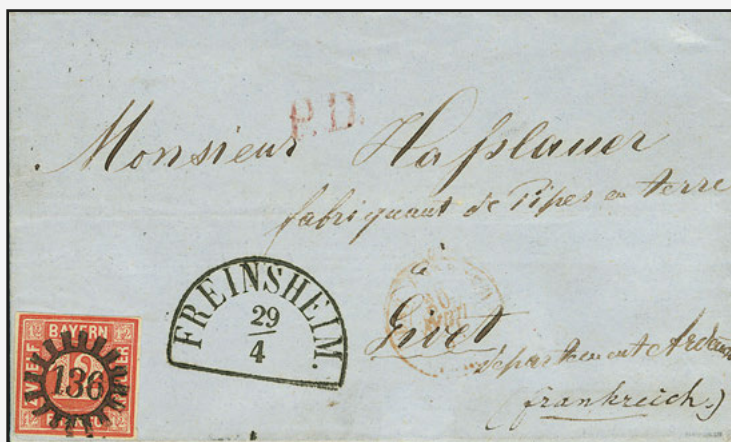 P.D.
Monsieur Haßlauer
fabriquant de Pipes en terre
à
Givet
departement Ardennes
(Frankreich.)
FREINSHEIM.
29
4
12 BAYERN 12
ZWOELF
12
136